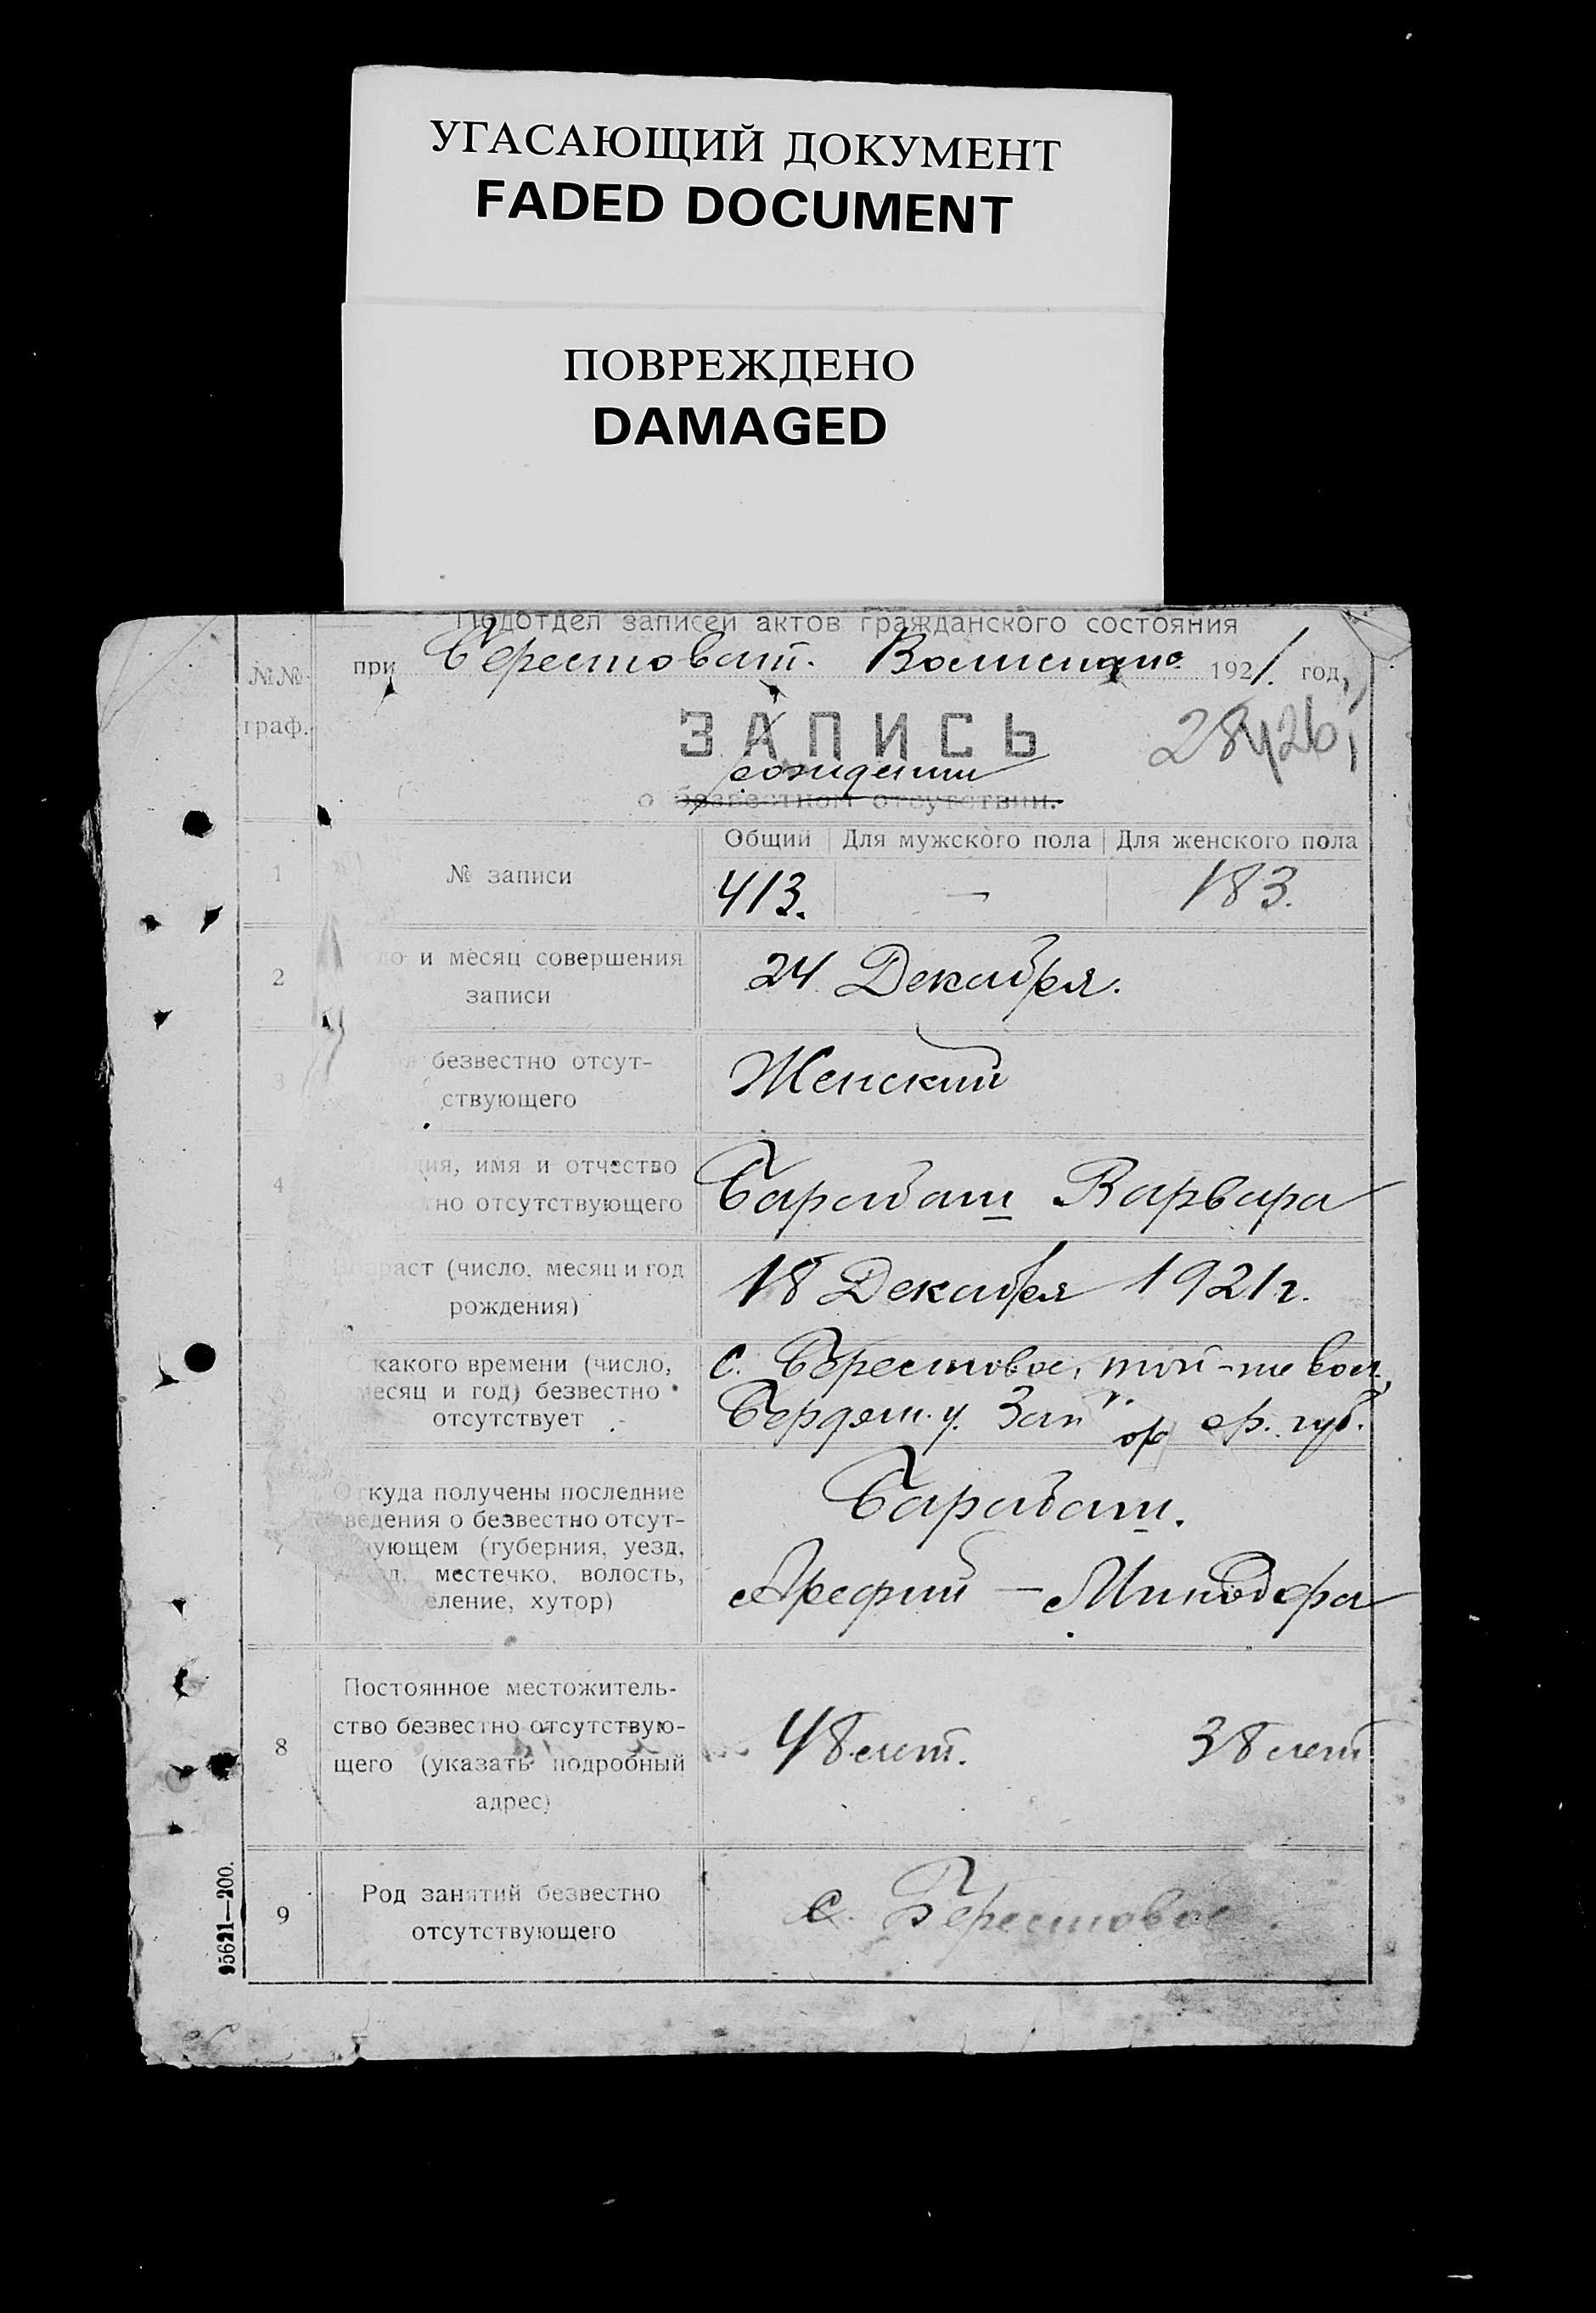 УГАСАЮЩИЙ ДОКУМЕНТ
FADED DOCUMENT
ПОВРЕЖДЕНО
DAMAGED
Подотдел записей актов гражданского состояния
№№ граф.
при Берестоват. 1921. год,
ЗАПИСЬ
рождении
о безвестном отсутствии.
Общий Для мужского пола Для женского пола
1 № записи 413. — 183.
2 и месяц совершения
записи
24 Декабря.
3 безвестно отсут-
ствующего
Женский
4 имя и отчество
но отсутствующего
Барабаш Варвара
Возраст (число, месяц и год
рождения)
18 Декабря 1921 г.
С какого времени (число,
месяц и год) безвестно
отсутствует
с. Берестовое, той-же вол.,
Бердян. у. Зап ор. губ.
Откуда получены последние
сведения о безвестно отсут-
ующем (губерния, уезд,
местечко, волость,
еление, хутор)
7
Барабаш.
Арефий — Минодора
8 Постоянное местожитель-
ство безвестно отсутствую-
щего (указать подробный
адрес)
48 лет. 38 лет
9 Род занятий безвестно
отсутствующего
с. Берестовое.
95621—200.